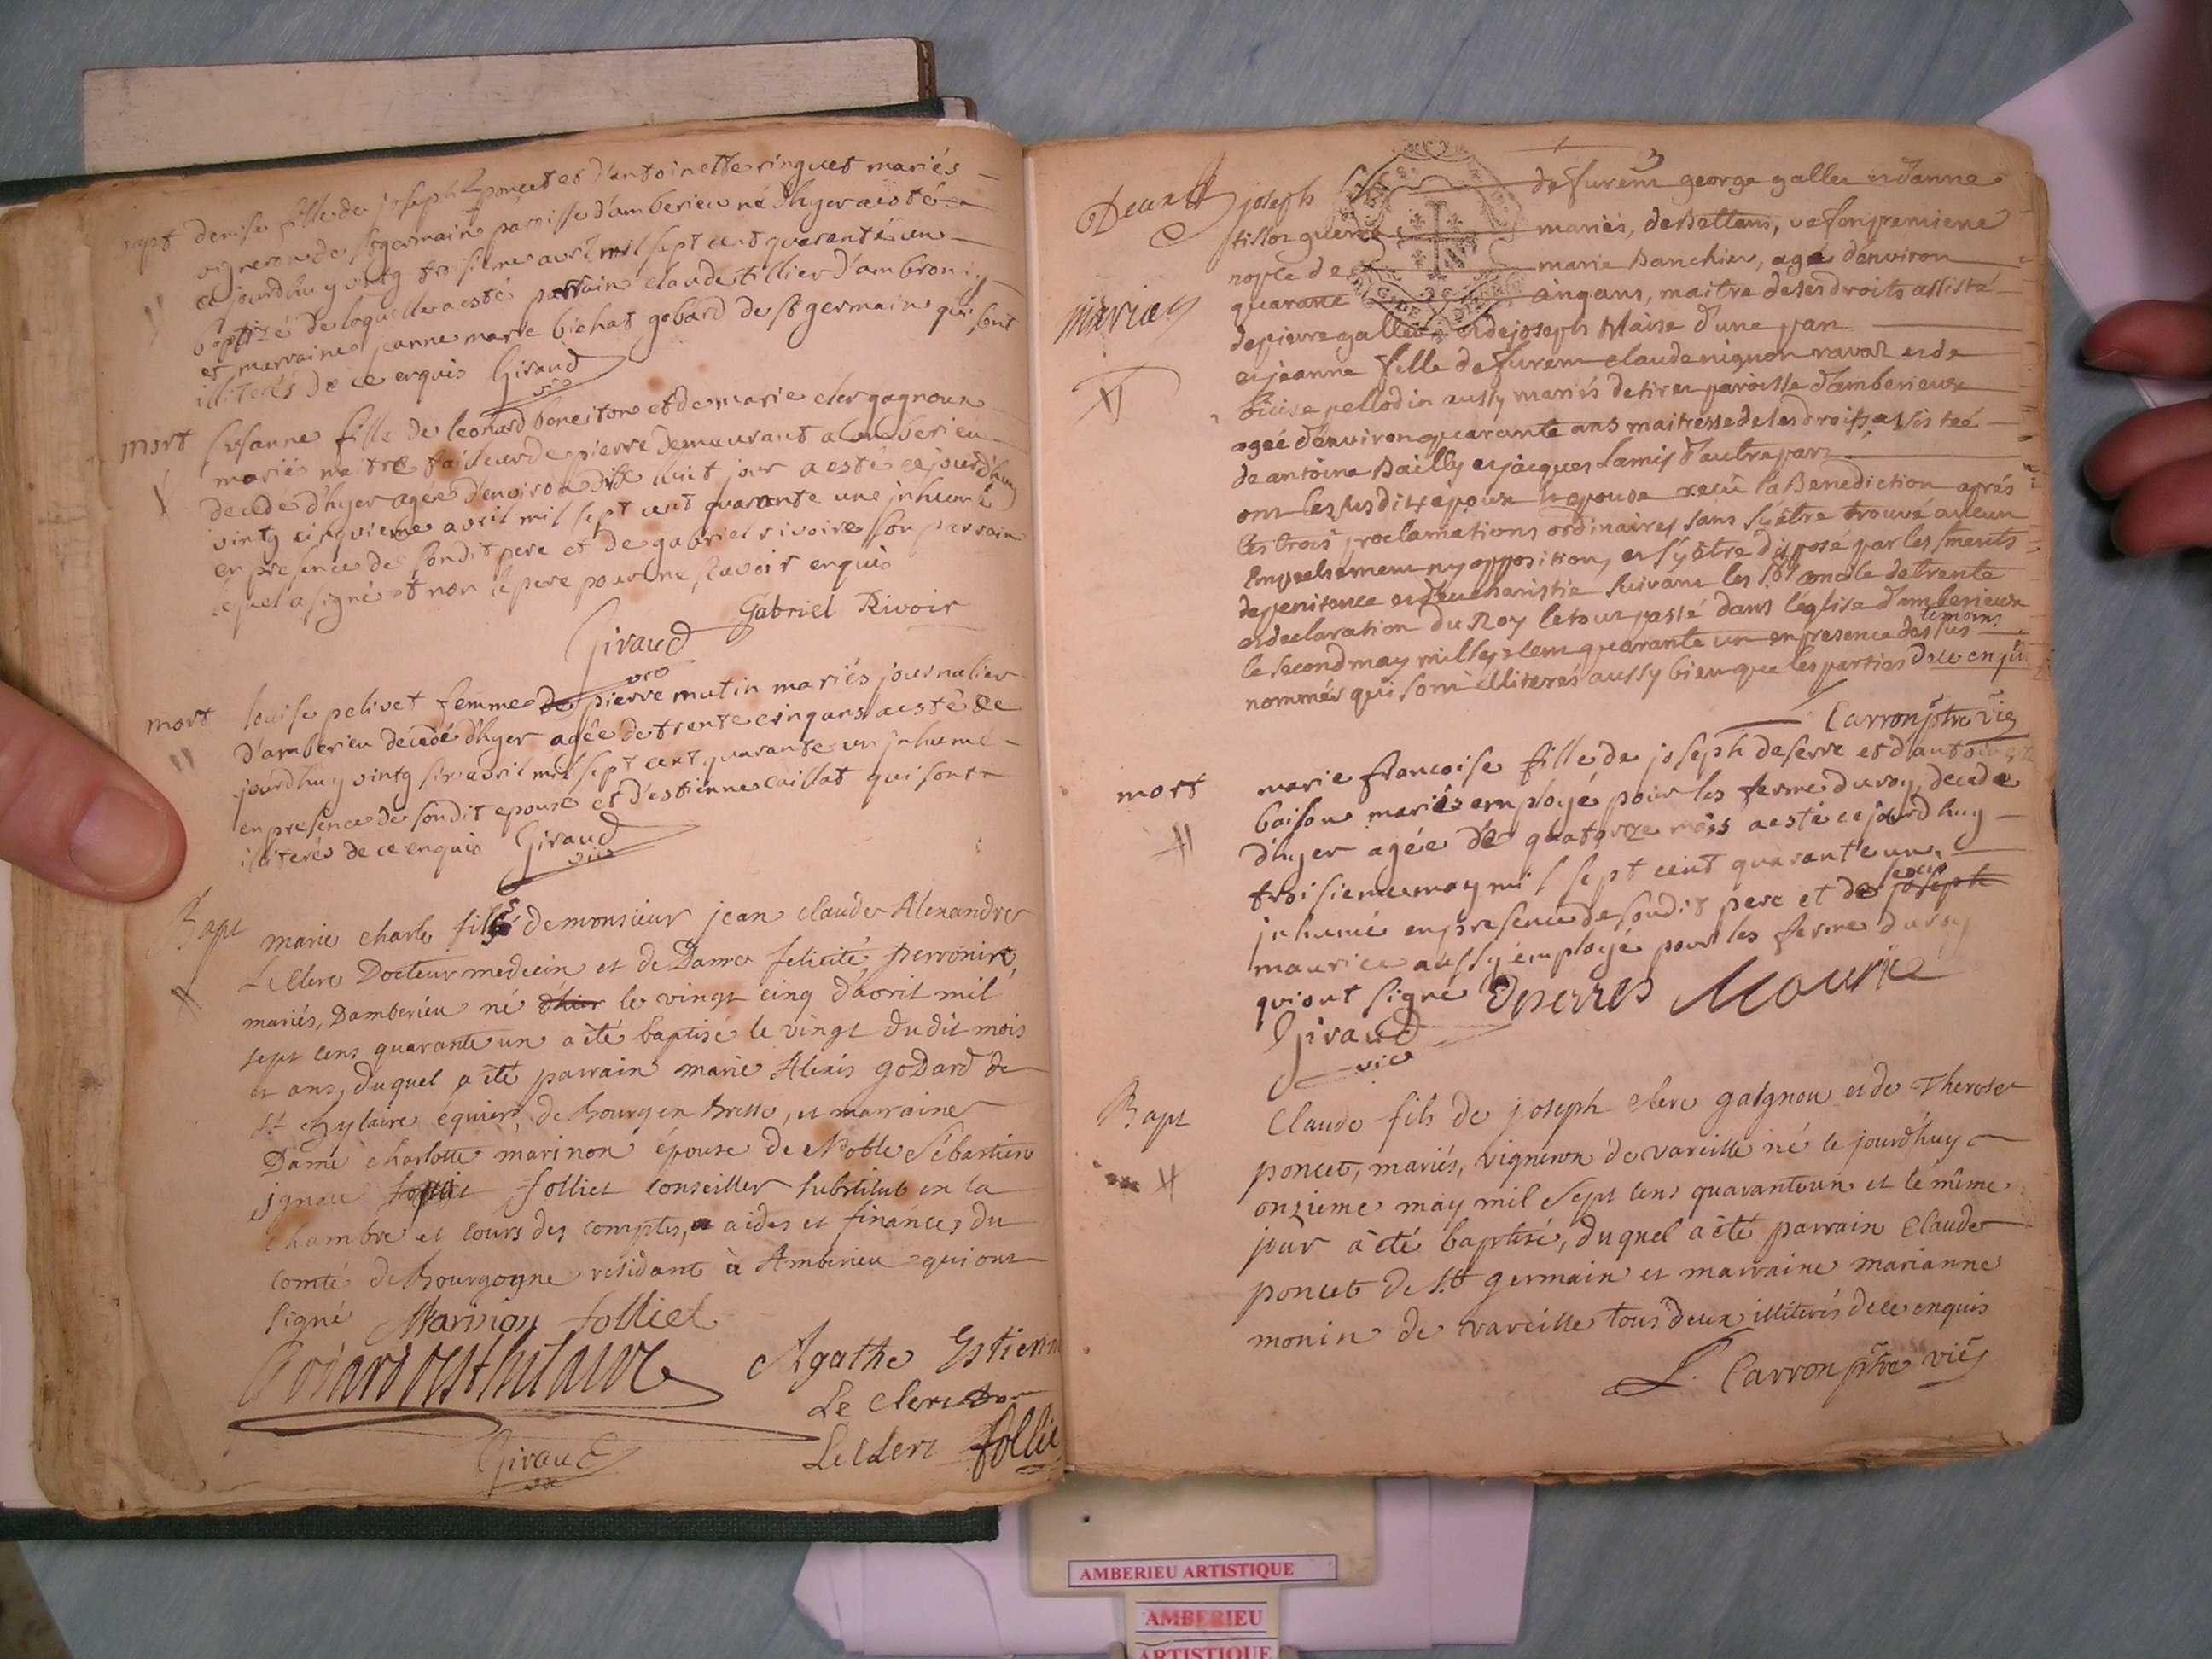 bapt denise fille de joseph poncet et d'antoinette ringuet mariés
vigneron de st germain paroisse d'amberieu né d'hyer a esté
ce jourdhuy vintg troisieme avril mil sept cent quarante un
baptizé de laquelle a esté parrain claude tillier d'ambroniy
et marraine jeanne marie bichat gobard de st germain qui sont
illiterés de ce enquis Giraud
vic
mort susanne fille de leonard boneiton et de marie clergagnoux
mariés maitre tailleur de pierre demeurant a amberieu
decedé d'hyer agée d'environ dix huit jour a esté ce jourdhuy
vintg cinquieme avril mil sept cent quarante une inhumé
en presence de sondit pere et de gabriel rivoire son parrain
lequel a signé et non le pere pour ne sçavoir enquis
Gabriel Rivoir
Giraud
vic
mort louise pelivet femme de pierre mutin mariés journalier
d'amberieu decedé d'hyer agée de trente cinq ans a esté ce
jourdhuy vintg six avril mil sept cent quarante un inhumé
en presence de sondit epoux et d'estienne caillat qui sont
illiterés de ce enquis Giraud
vic
Bapt marie charle fils de monsieur jean claude Alexandre
Leclerc Docteur medecin et de Dame felicité perronire
mariés, Damberieu né d'hier le vingt cinq davril mil
sept cens quarante un a été baptise le vingt du dit mois
et ans, duquel a été parrain marie Alexis goDard de
st hylaire équier, de bourg en bresse, et marraine
Dame charlotte marinon épouse de Noble Sébastien
ignace folliet conseiller substitut en la
chambre et cours des comptes, aides et finances du
comté de Bourgogne residant à Amberieu qui ont
signé Marinon folliet
Godard de st hilaire Agathe Estienn
Le Clerc
Leclerc follie
Giraud
vic
3
joseph de furent george galler et d'anne
tillozguerre mariés, de Bettans, vef en premiere
nopce de marie Banchier, agé d'environ
quarante cinq ans, maitre de ses droits assisté
de pierre galler et de joseph blaise d'une part
et jeanne fille de furent claude nignon ravat et de
pellodin aussy mariés de tirer paroisse d'amberieux
agée d'environ quarante ans maitresse de ses droits assistée
de antoine Bailly et jacques Lamy d'autre part
mariag
ont les susdits epoux et epouse reçû la Benediction aprés
les trois proclamations ordinaires sans s'y être trouvé aucun
empechement ny opposition, et s'y être disposé par les sments
de penitence et d'eucharistie suivant les st concile de trente
et declaration du Roy le tout passé dans l'église d'amberieux
le second may mil sept cent quarante un en presence des sus temoins
nommés qui sont illiterés aussy bien que les parties de ce enquis
Carron ptre vic
mort marie francoise fille de joseph deserre et d'antoinette
baison mariés employé pour les ferme du roy, decedé
d'hyer agée de quatorze mois a esté ce jourdhuy
troisieme may mil sept cent quarante un
inhumé en presence de sondit pere et de joseph
maurice aussy employé pour les ferme du roy
qui ont signé Deserres Mourice
Giraud
vic
Bapt Claude fils de joseph clerc gaignou et de Therese
poncet, mariés, vigneron de vareille né le jourdhuy
onzieme may mil sept cens quarante un et le même
jour a été baptisé, duquel a été parrain Claude
poncet de st germain et marraine marianne
monin de vareille tous deux illiterés de ce enquis
L. Carron ptre vic
AMBERIEU ARTISTIQUE
AMBERIEU
ARTISTIQUE